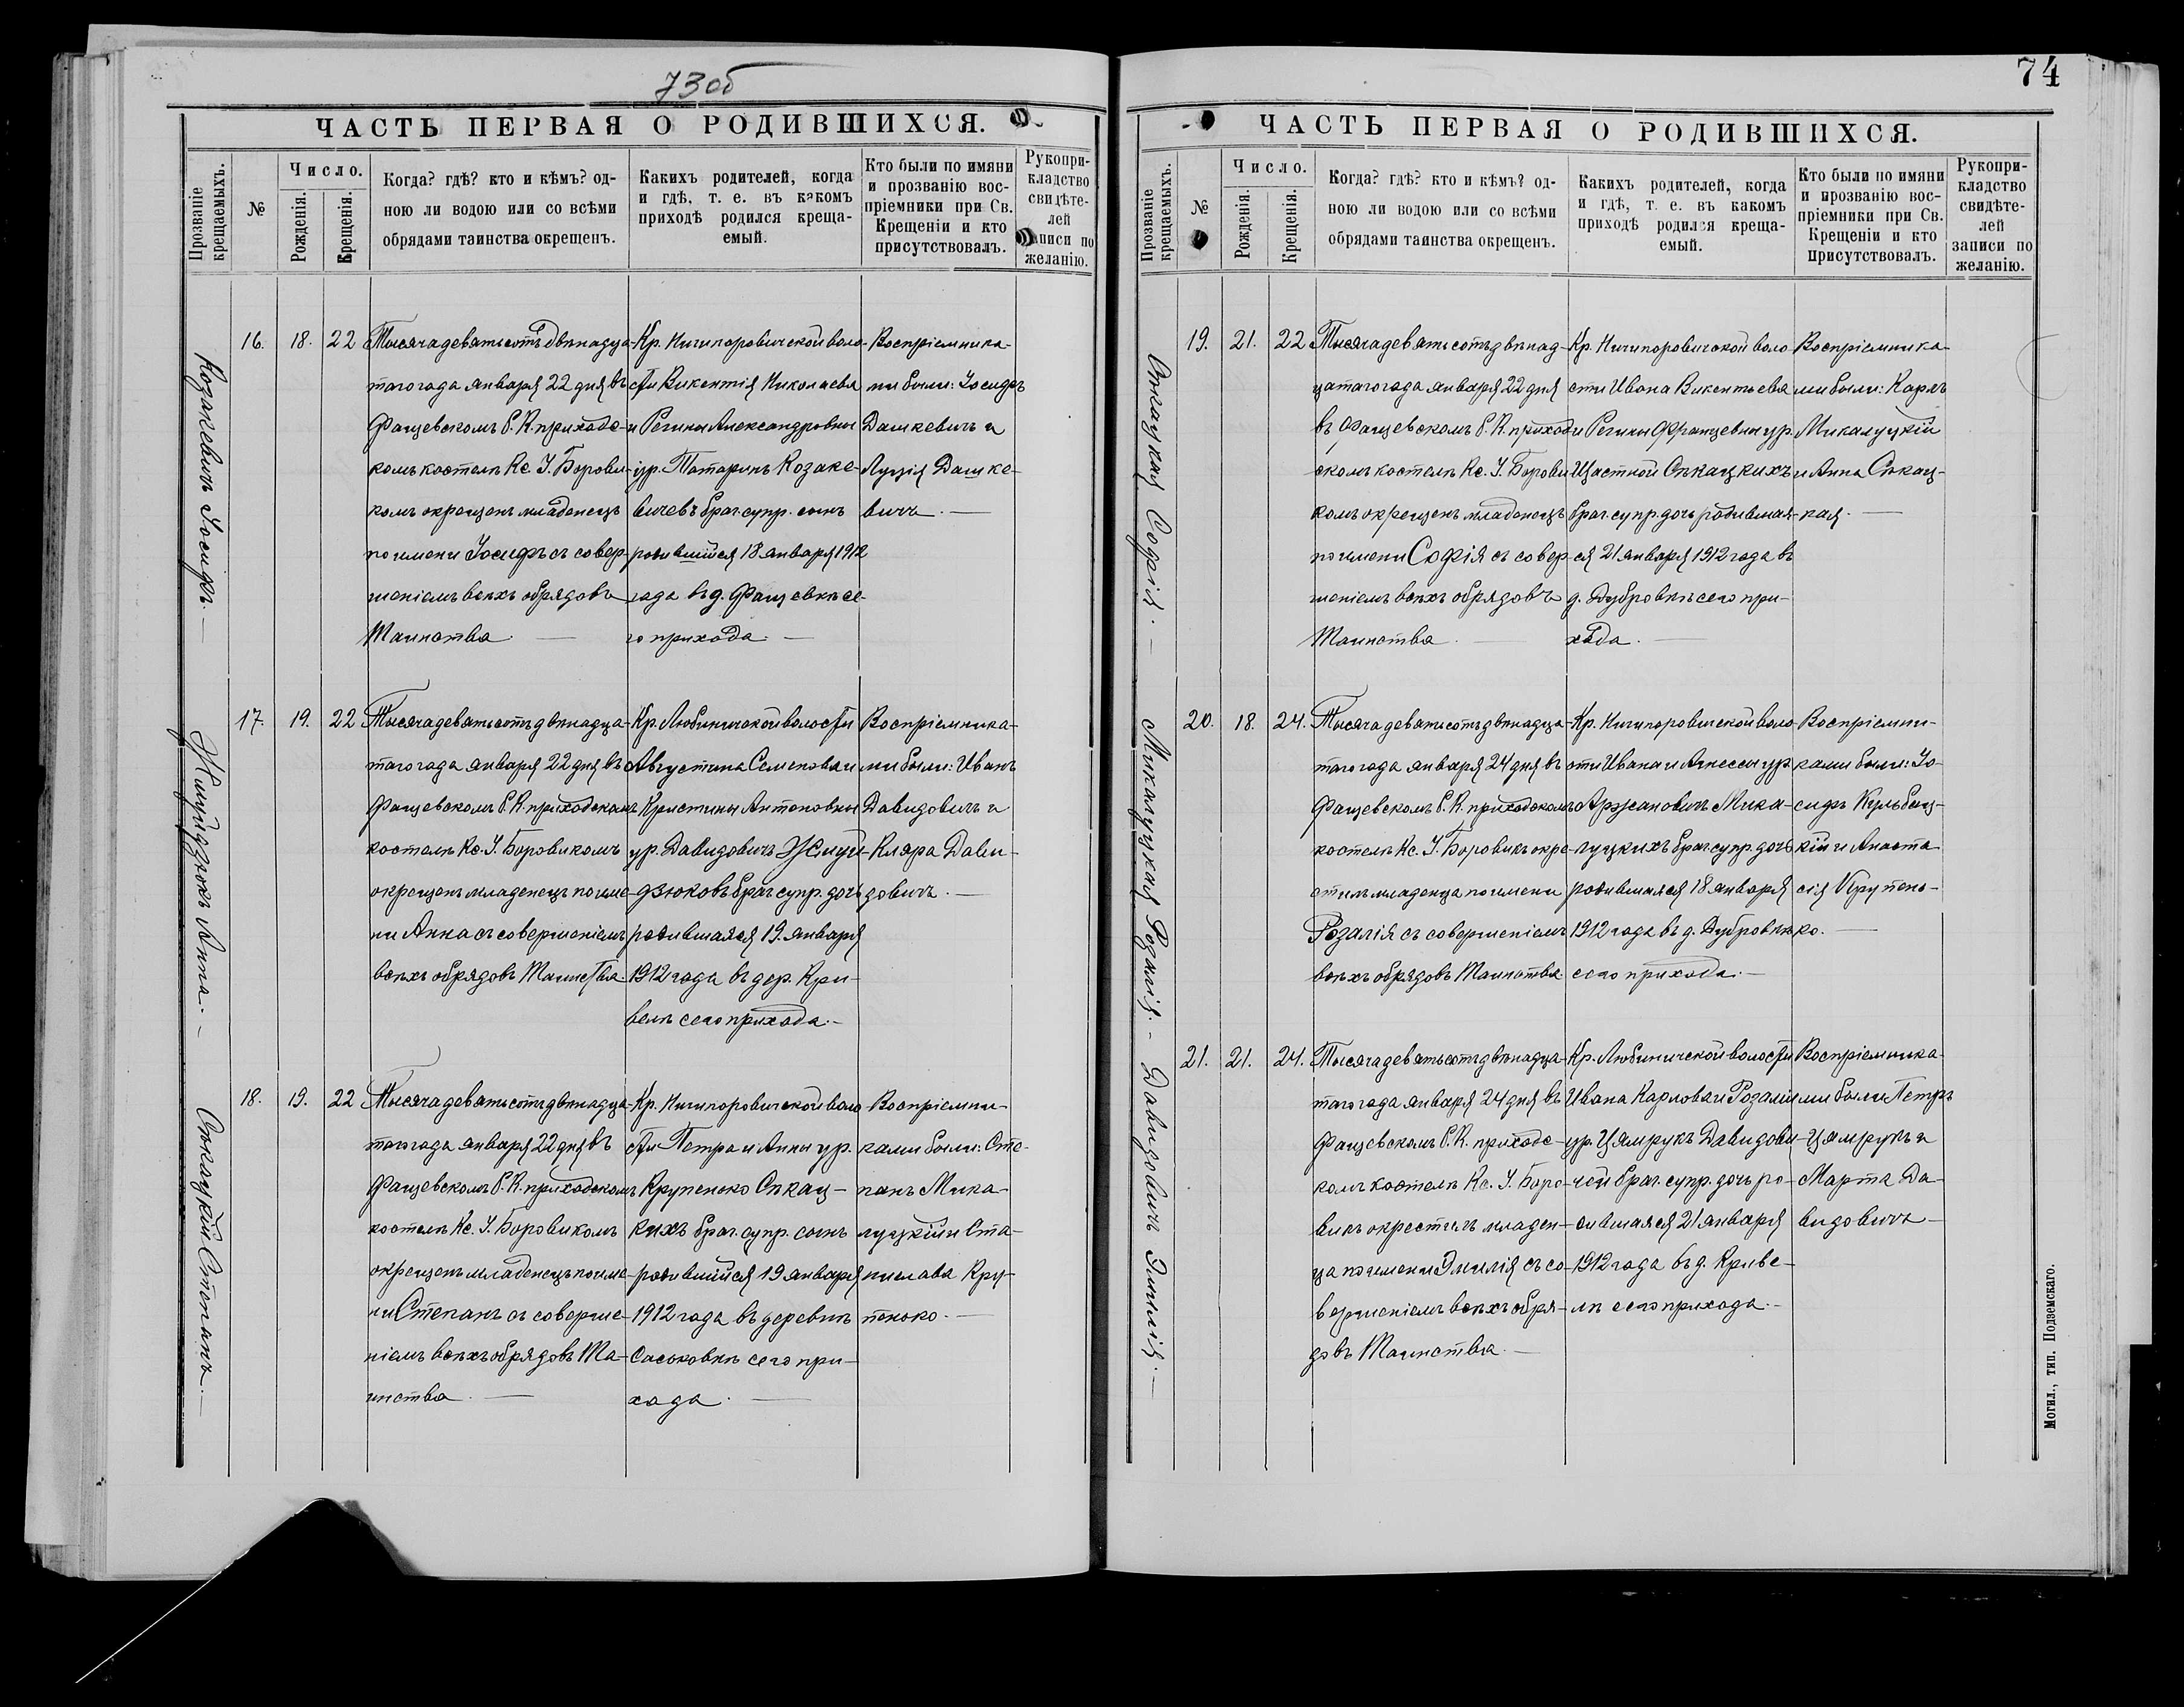 73об
ЧАСТЬ ПЕРВАЯ О РОДИВШИХСЯ.
Прозваніе крещаемыхъ.
№
Число.
Рожденія.
Крещенія.
Когда? гдѣ? кто и кѣмъ? од-
ною ли водою или со всѣми
обрядами таинства окрещенъ.
Какихъ родителей, когда
и гдѣ, т. е. въ какомъ
приходѣ родился креща-
емый.
Кто были по имяни
и прозванію вос-
пріемники при Св.
Крещеніи и кто
присутствовалъ.
Рукопри-
кладство
свидѣте-
лей
записи по
желанію.
Козакевичъ Іосифъ. —
16.
18.
22
Тысяча девятьсотъ двѣнадца-
таго года января 22 дня въ
Фащевскомъ Р. К. приходс-
комъ костелѣ Кс. І. Борови-
комъ окрещенъ младенецъ
по имени Іосифъ съ совер-
шеніемъ всѣхъ обрядовъ
Таинства. —
Кр. Ничипоровичской воло-
сти Викентія Николаева
и Регины Александровны
ур. Татаринъ Козаке-
вичевъ брач. супр. сынъ
родившійся 18 января 1912
года въ д. Фащевкѣ се-
го прихода. —
Воспріемника-
ми были: Іосифъ
Дашкевичъ и
Луція Дашке-
вичъ. —
Жмуйдзюкъ Анна. —
17.
19.
22
Тысяча девятьсотъ двѣнадца-
таго года января 22 дня въ
Фащевскомъ Р. К. приходскомъ
костелѣ Кс. І. Боровикомъ
окрещенъ младенецъ по име-
ни Анна съ совершеніемъ
всѣхъ обрядовъ Таинства.
Кр. Любиничской волости
Августина Семенова и
Христины Антоновны
ур. Давидовичъ Жмуй-
дзюковъ брач. супр. дочь
родившаяся 19. января
1912 года въ дер. Кри-
велѣ сего прихода. —
Воспріемника-
ми были: Иванъ
Давидовичъ и
Кляра Дави-
довичъ. —
Сѣкацкій Степанъ. —
18.
19.
22
Тысяча девятьсотъ двѣнадца-
таго года января 22 дня въ
Фащевскомъ Р. К. приходскомъ
костелѣ Кс. І. Боровикомъ
окрещенъ младенецъ по име-
ни Степанъ съ соверше-
ніемъ всѣхъ обрядовъ Та-
инства. —
Кр. Ничипоровичской воло
сти Петра и Анны ур.
Крупенько Сѣкац-
кихъ брач. супр. сынъ
родившійся 19 января
1912 года въ деревнѣ
Саськовкѣ сего при-
хода. —
Воспріемни-
ками были: Сте-
панъ Мика-
луцкій и Ста-
нислава Кру-
пенько. —
74
ЧАСТЬ ПЕРВАЯ О РОДИВШИХСЯ.
Прозваніе крещаемыхъ.
№
Число.
Рожденія.
Крещенія.
Когда? гдѣ? кто и кѣмъ? од-
ною ли водою или со всѣми
обрядами таинства окрещенъ.
Какихъ родителей, когда
и гдѣ, т. е. въ какомъ
приходѣ родился креща-
емый.
Кто были по имяни
и прозванію вос-
пріемники при Св.
Крещеніи и кто
присутствовалъ.
Рукопри-
кладство
свидѣте-
лей
записи по
желанію.
Сѣкацкая Софія. —
19.
21.
22
Тысяча девятьсотъ двѣнад-
цатаго года января 22 дня
въ Фащевскомъ Р. К. приход
скомъ костелѣ Кс. І. Борови
комъ окрещенъ младенецъ
по имени Софія съ совер-
шеніемъ всѣхъ обрядовъ
Таинства. —
Кр. Ничипоровичской воло
сти Ивана Викентьева
и Регины Францевны ур.
Щастной Сѣкацкихъ
брач. супр. дочь родившая-
ся 21 января 1912 года въ
д. Дубровкѣ сего при-
хода. —
Воспріемника-
ми были: Карлъ
Микалуцкій
и Анна Сѣкац-
кая. —
Микалуцкая Розалія. —
20.
18.
24.
Тысяча девятьсотъ двѣнадца-
таго года января 24 дня въ
Фащевскомъ Р. К. приходскомъ
костелѣ Кс. І. Боровикъ окре-
стилъ младенца по имени
Розалія съ совершеніемъ
всѣхъ обрядовъ Таинства.
Кр. Ничипоровичской воло
сти Ивана и Агнессы ур.
Аржановичъ Мика-
луцкихъ брач. супр. дочь
родившаяся 18 января
1912 года въ д. Дубровкѣ
сего прихода. —
Воспріемни-
ками были: Іо-
сифъ Кульбиц-
кій и Анаста
сія Крупень-
ко. —
Давидовичъ Эмилія. —
21.
21.
24.
Тысяча девятьсотъ двѣнадца-
таго года января 24 дня въ
Фащевскомъ Р. К. приходс-
комъ костелѣ Кс. І. Боро-
викъ окрестилъ младен-
ца по имени Эмилія съ со-
вершеніемъ всѣхъ обря-
довъ Таинства. —
Кр. Любиничской волости
Ивана Карлова и Розаліи
ур. Цямрукъ Давидови-
чей брач. супр. дочь ро-
дившаяся 21 января
1912 года въ д. Криве-
лѣ сего прихода. —
Воспріемника-
ми были Петръ
Цямрукъ и
Марта Да-
видовичъ —
Могил., тип. Подземскаго.